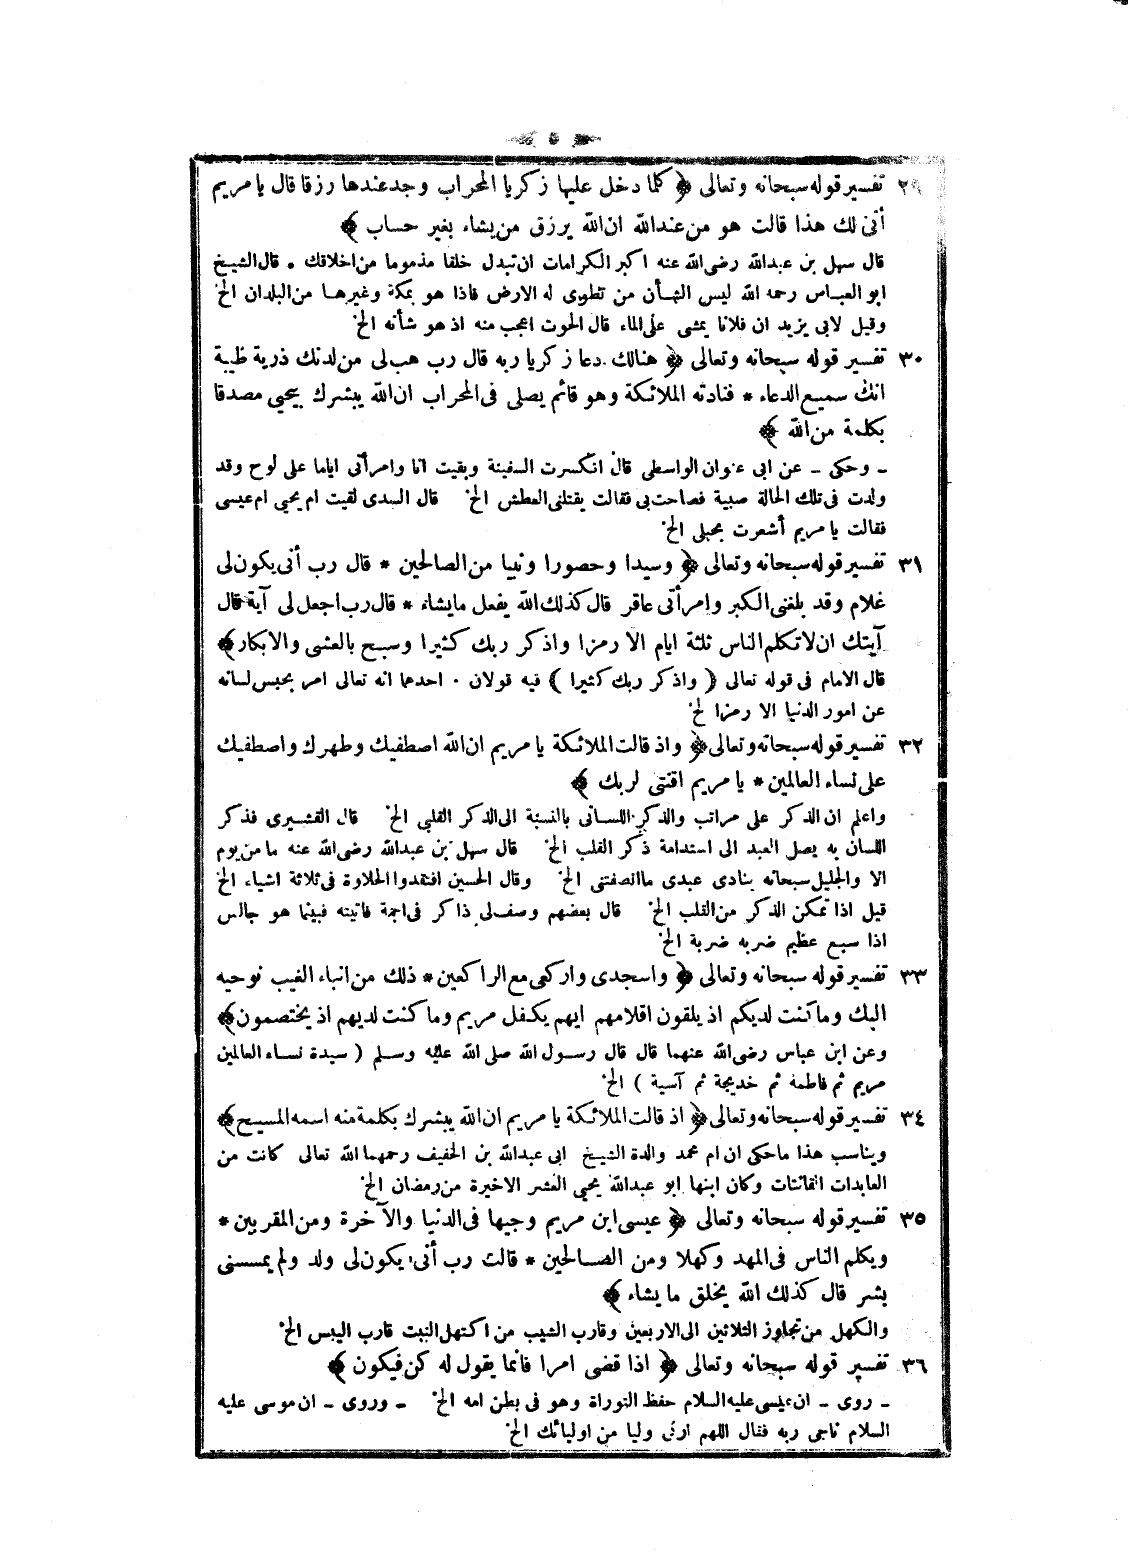 ٥
٢٩ تفسير قوله سبحانه وتعالى ﴿ كلما دخل عليها زكريا المحراب وجد عندها رزقا قال يا مريم
أنى لك هذا قالت هو من عندالله ان الله يرزق من يشاء بغير حساب ﴾
قال سهل بن عبدالله رضى الله عنه اكبر الكرامات ان تبدل خلقا مذموما من اخلاقك . قال الشيخ
ابو العباس رحمه الله ليس الشأن من تطوى له الارض فاذا هو بمكة وغيرها من البلدان الخ
وقيل لابى يزيد ان فلانا يمشى على الماء قال الحوت اعجب منه اذ هو شأنه الخ
٣٠ تفسير قوله سبحانه وتعالى ﴿ هنالك دعا زكريا ربه قال رب هب لى من لدنك ذرية طيبة
انك سميع الدعاء * فنادته الملائكة وهو قائم يصلى فى المحراب ان الله يبشرك بيحيى مصدقا
بكلمة من الله ﴾
ـ وحكى ـ عن ابى عنوان الواسطى قال انكسرت السفينة وبقيت انا وامرأتى اياما على لوح وقد
ولدت فى تلك الحالة صبية فصاحت بى فقالت يقتلنى العطش الخ قال السدى لقيت ام يحيى ام عيسى
فقالت يا مريم أشعرت بحبلى الخ
٣١ تفسير قوله سبحانه وتعالى ﴿ وسيدا وحصورا ونبيا من الصالحين * قال رب أنى يكون لى
غلام وقد بلغنى الكبر وامرأتى عاقر قال كذلك الله يفعل ما يشاء * قال رب اجعل لى آية قال
آيتك ان لا تكلم الناس ثلثة ايام الا رمزا واذكر ربك كثيرا وسبح بالعشى والابكار ﴾
قال الامام فى قوله تعالى ( واذكر ربك كثيرا ) فيه قولان . احدهما انه تعالى امر بحبس لسانه
عن امور الدنيا الا رمزا لخ
٣٢ تفسير قوله سبحانه وتعالى ﴿ واذ قالت الملائكة يا مريم ان الله اصطفيك وطهرك واصطفيك
على نساء العالمين * يا مريم اقنتى لربك ﴾
واعلم ان الذكر على مراتب والذكر اللسانى بالنسبة الى الذكر القلبى الخ قال القشيرى فذكر
اللسان به يصل العبد الى استدامة ذكر القلب الخ قال سهل بن عبدالله رضى الله عنه ما من يوم
الا والجليل سبحانه ينادى عبدى ما انصفتنى الخ وقال الحسين افتقدوا الحلاوة فى ثلاثة اشياء الخ
قيل اذا تمكن الذكر من القلب الخ قال بعضهم وصف لى ذاكر فى اجمة فاتيته فبينما هو جالس
اذا سبع عظيم ضربه ضربة الخ
٣٣ تفسير قوله سبحانه وتعالى ﴿ واسجدى واركعى مع الراكعين * ذلك من انباء الغيب نوحيه
اليك وما كنت لديكم اذ يلقون اقلامهم ايهم يكفل مريم وما كنت لديهم اذ يختصمون ﴾
وعن ابن عباس رضى الله عنهما قال قال رسول الله صلى الله عليه وسلم ( سيدة نساء العالمين
مريم ثم فاطمة ثم خديجة ثم آسية ) الخ
٣٤ تفسير قوله سبحانه وتعالى ﴿ اذ قالت الملائكة يا مريم ان الله يبشرك بكلمة منه اسمه المسيح ﴾
ويناسب هذا ما حكى ان ام محمد والدة الشيخ ابى عبدالله بن الخفيف رحمهما الله تعالى كانت من
العابدات القانتات وكان ابنها ابو عبدالله يحيى العشر الاخيرة من رمضان الخ
٣٥ تفسير قوله سبحانه وتعالى ﴿ عيسى ابن مريم وجيها فى الدنيا والآخرة ومن المقربين *
ويكلم الناس فى المهد وكهلا ومن الصالحين * قالت رب أنى يكون لى ولد ولم يمسسنى
بشر قال كذلك الله يخلق ما يشاء ﴾
والكهل من تجاوز الثلاثين الى الاربعين وقارب الشيب من اكتهل النبت قارب اليبس الخ
٣٦ تفسير قوله سبحانه وتعالى ﴿ اذا قضى امرا فانما يقول له كن فيكون ﴾
ـ روى ـ ان عيسى عليه السلام حفظ التوراة وهو فى بطن امه الخ ـ وروى ـ ان موسى عليه
السلام ناجى ربه فقال اللهم ارنى وليا من اوليائك الخ